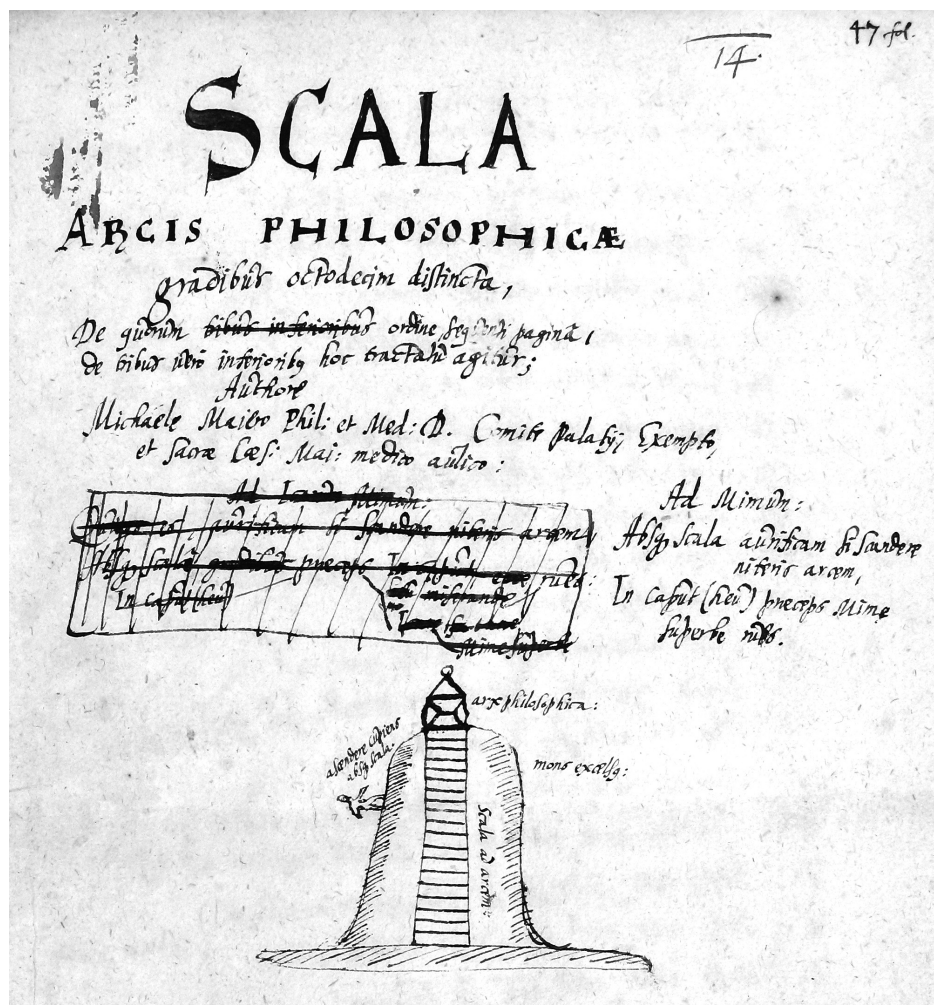 47 fol.
14.
SCALA
ARCIS PHILOSOPHICÆ
gradibus octodecim distincta,
De quorum tribus inferioribus ordine sequenti pagina,
de tribus vero inferioribq hoc tractatu agitur;
Authore
Michaele Maiero Phil: et Med: D. Comite Palatij Exempto,
et Sacræ Cæs: Mai: medico aulico:
Ad Mimum:
aurificam si scandere niteris arcem,
Absq scala præceps In caput rues:
In caput (heu)
Mime superbe
Ad Mimum:
Absq scala aurificam si scandere
niteris arcem,
In caput (heu) præceps Mime
superbe rues.
arx philosophica:
ascendere cupiens
absq scala.
mons excelsq:
Scala ad arcem: